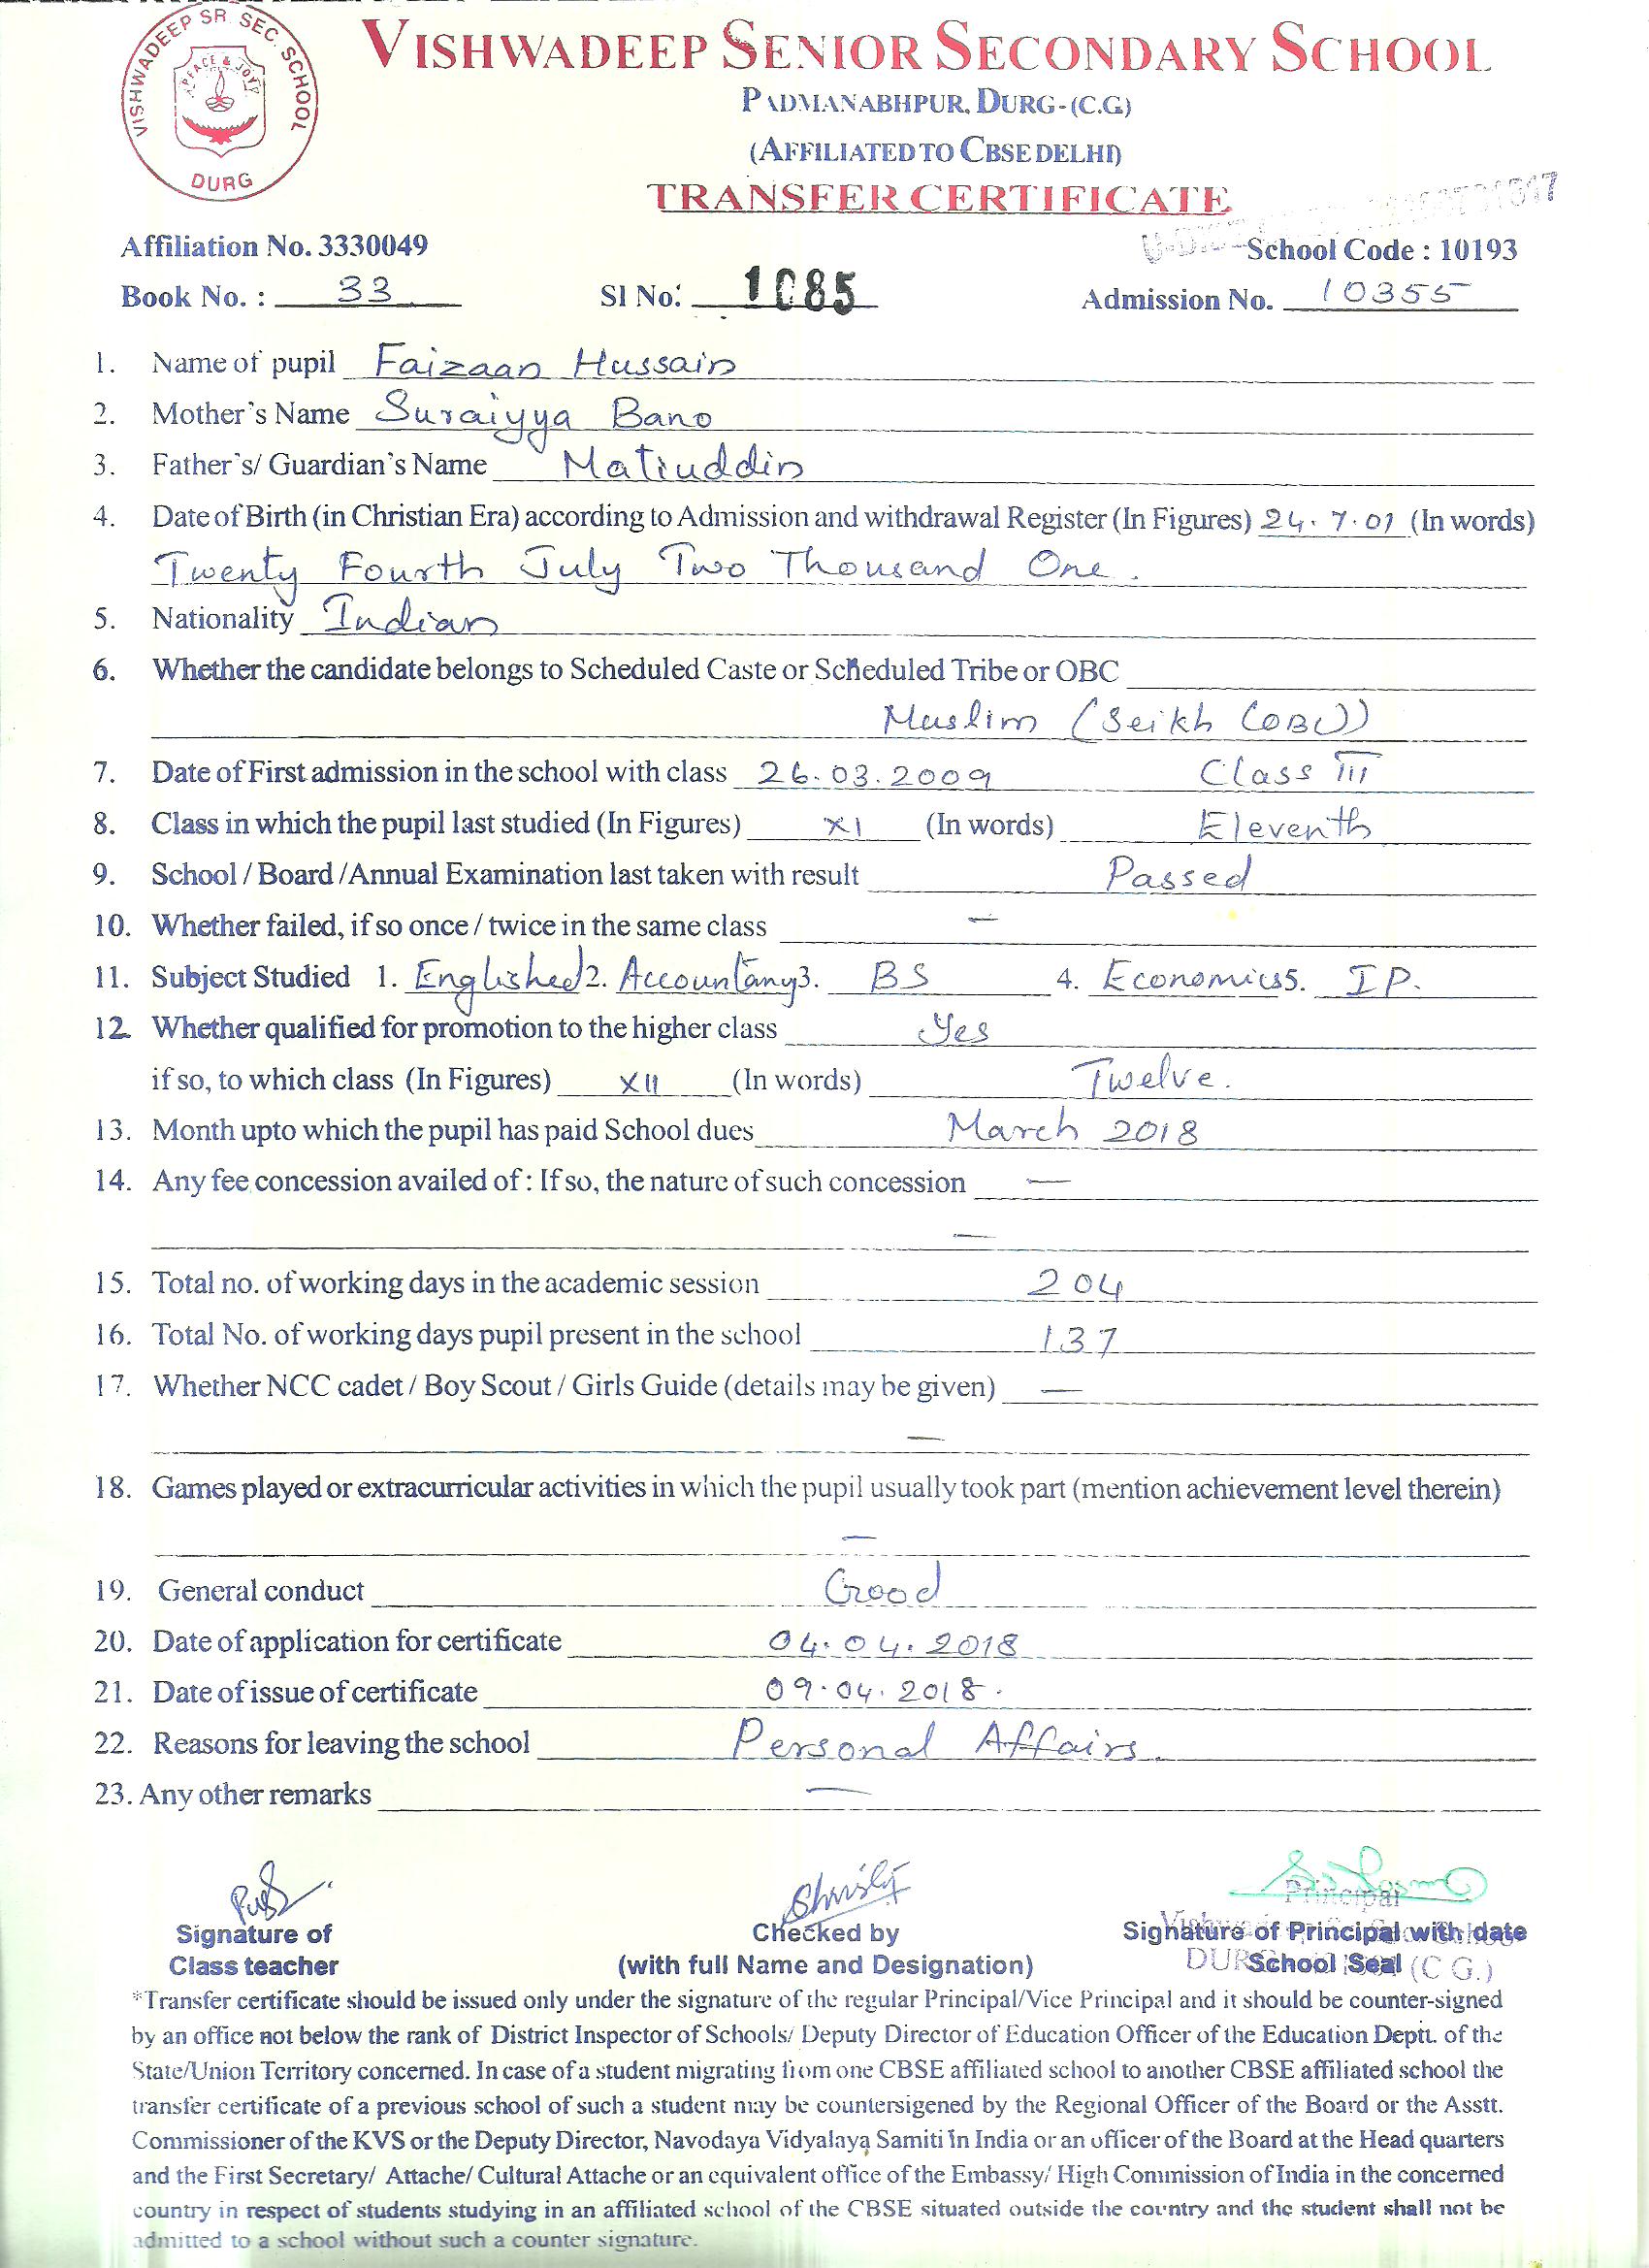 VISHWADEEP SR. SEC. SCHOOL
PEACE & JOY
DURG
VISHWADEEP SENIOR SECONDARY SCHOOL
PADMANABHPUR, DURG-(C.G)
(AFFILIATED TO CBSE DELHI)
TRANSFER CERTIFICATE
Affiliation No. 3330049 School Code : 10193
Book No. : 33 Sl No. 1085 Admission No. 10355
1. Name of pupil Faizaan Hussain
2. Mother's Name Suraiyya Bano
3. Father's/ Guardian's Name Matiuddin
4. Date of Birth (in Christian Era) according to Admission and withdrawal Register (In Figures) 24.7.01 (In words)
Twenty Fourth July Two Thousand One.
5. Nationality Indian
6. Whether the candidate belongs to Scheduled Caste or Scheduled Tribe or OBC
Muslim (Seikh (OBC))
7. Date of First admission in the school with class 26.03.2009 Class III
8. Class in which the pupil last studied (In Figures) XI (In words) Eleventh
9. School / Board /Annual Examination last taken with result Passed
10. Whether failed, if so once / twice in the same class —
11. Subject Studied 1. English 2. Accountany 3. BS 4. Economics 5. IP.
12. Whether qualified for promotion to the higher class Yes
if so, to which class (In Figures) XII (In words) Twelve.
13. Month upto which the pupil has paid School dues March 2018
14. Any fee concession availed of : If so, the nature of such concession —
—
15. Total no. of working days in the academic session 204
16. Total No. of working days pupil present in the school 137
17. Whether NCC cadet / Boy Scout / Girls Guide (details may be given) —
—
18. Games played or extracurricular activities in which the pupil usually took part (mention achievement level therein)
—
19. General conduct Good
20. Date of application for certificate 04.04.2018
21. Date of issue of certificate 09.04.2018.
22. Reasons for leaving the school Personal Affairs.
23. Any other remarks —
Principal
Signature of Checked by Signature of Principal with date
Class teacher (with full Name and Designation) School Seal
DURG (C G.)
*Transfer certificate should be issued only under the signature of the regular Principal/Vice Principal and it should be counter-signed
by an office not below the rank of District Inspector of Schools/ Deputy Director of Education Officer of the Education Deptt. of the
State/Union Territory concerned. In case of a student migrating from one CBSE affiliated school to another CBSE affiliated school the
transfer certificate of a previous school of such a student may be countersigened by the Regional Officer of the Board or the Asstt.
Commissioner of the KVS or the Deputy Director, Navodaya Vidyalaya Samiti in India or an officer of the Board at the Head quarters
and the First Secretary/ Attache/ Cultural Attache or an equivalent office of the Embassy/ High Commission of India in the concerned
country in respect of students studying in an affiliated school of the CBSE situated outside the country and the student shall not be
admitted to a school without such a counter signature.